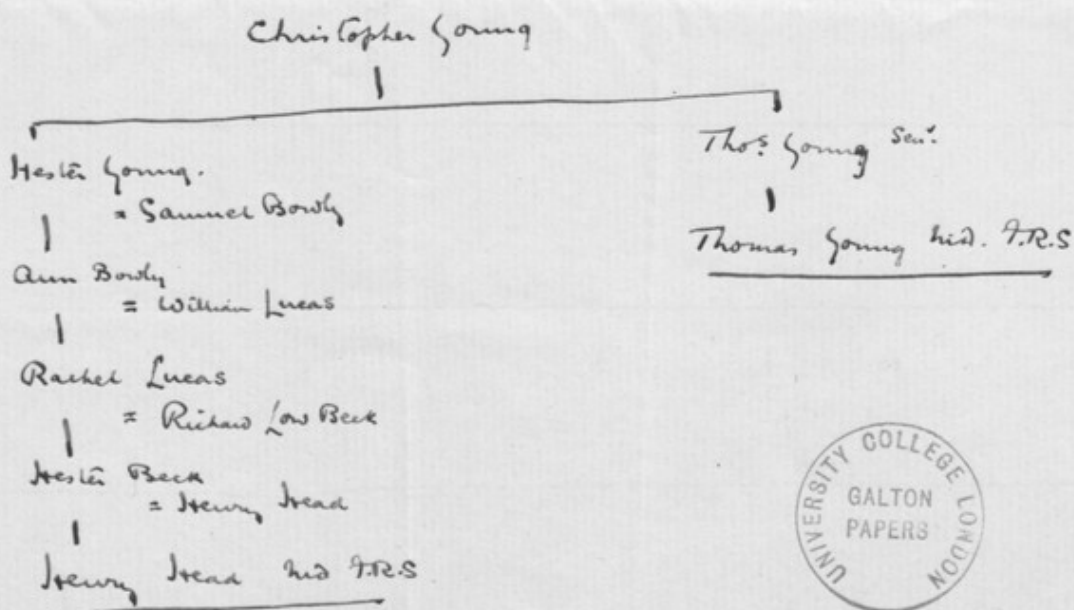 Christopher Young
Hester Young.
= Samuel Bowly
Ann Bowly
= William Lucas
Rachel Lucas
= Richard Low Beck
Hester Beck
= Henry Head
Henry Head M.D. F.R.S
Thos. Young Senr.
Thomas Young M.D. F.R.S
UNIVERSITY COLLEGE LONDON
GALTON
PAPERS